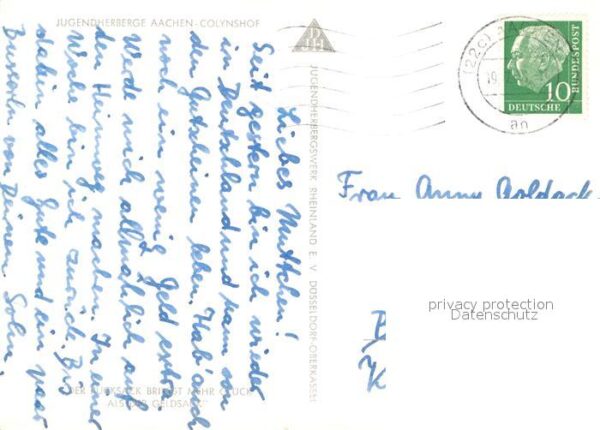 JUGENDHERBERGE AACHEN-COLYNSHOF
Liebes Muttchen!
Seit gestern bin ich wieder
in Deutschland und kann von
den Gutscheinen leben. Hab' auch
noch ein wenig Geld extra.
Werde mich allmählich auf
den Heimweg machen. In einer
Woche bin ich zurück. Bis
dahin alles Gute und ein paar
Busserln von Deinem Sohn.
"DER RUCKSACK BRINGT MEHR GLÜCK
ALS DER GELDSACK"
DJH
JUGENDHERBERGSWERK RHEINLAND E. V. DÜSSELDORF-OBERKASSEL
(22c)
19
an
10
DEUTSCHE
BUNDESPOST
Frau Anny
privacy protection
Datenschutz